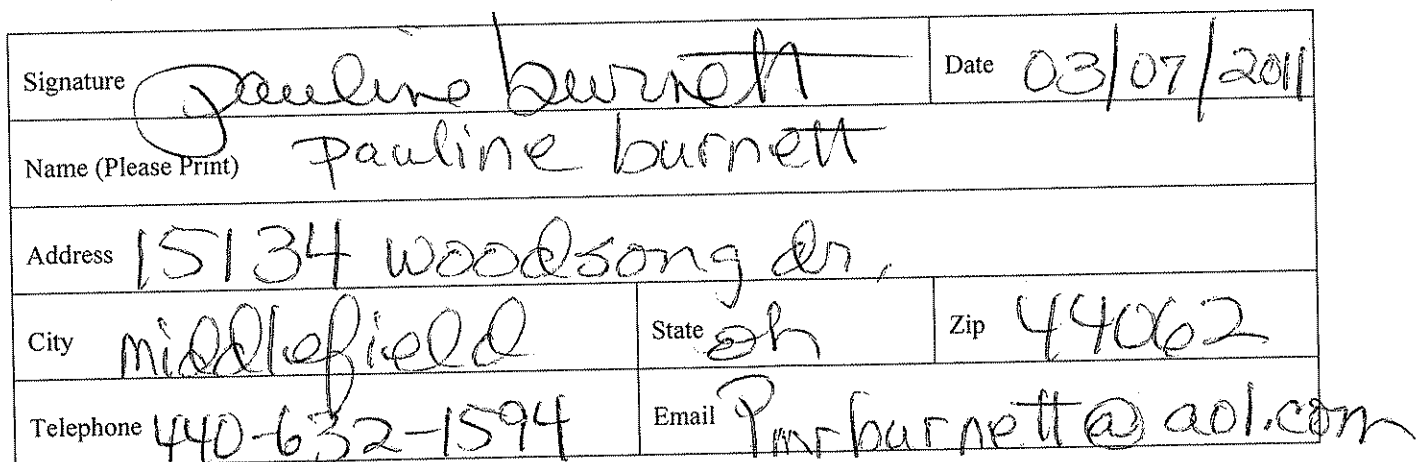 Signature pauline burnett Date 03/07/2011
Name (Please Print) pauline burnett
Address 15134 woodsong dr,
City middlefield State oh Zip 44062
Telephone 440-632-1594 Email Pmrburnett@aol.com